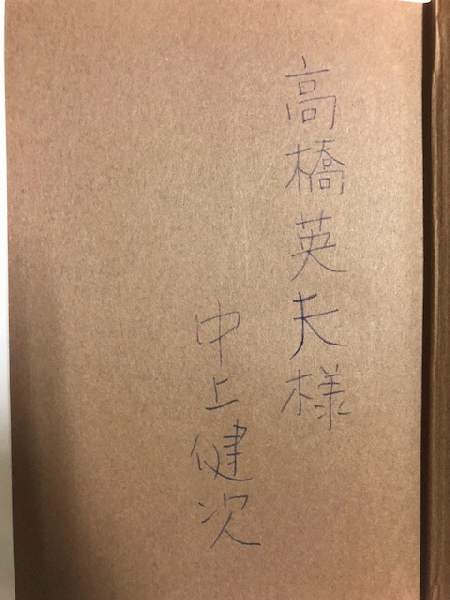 高橋英夫様
中上健次